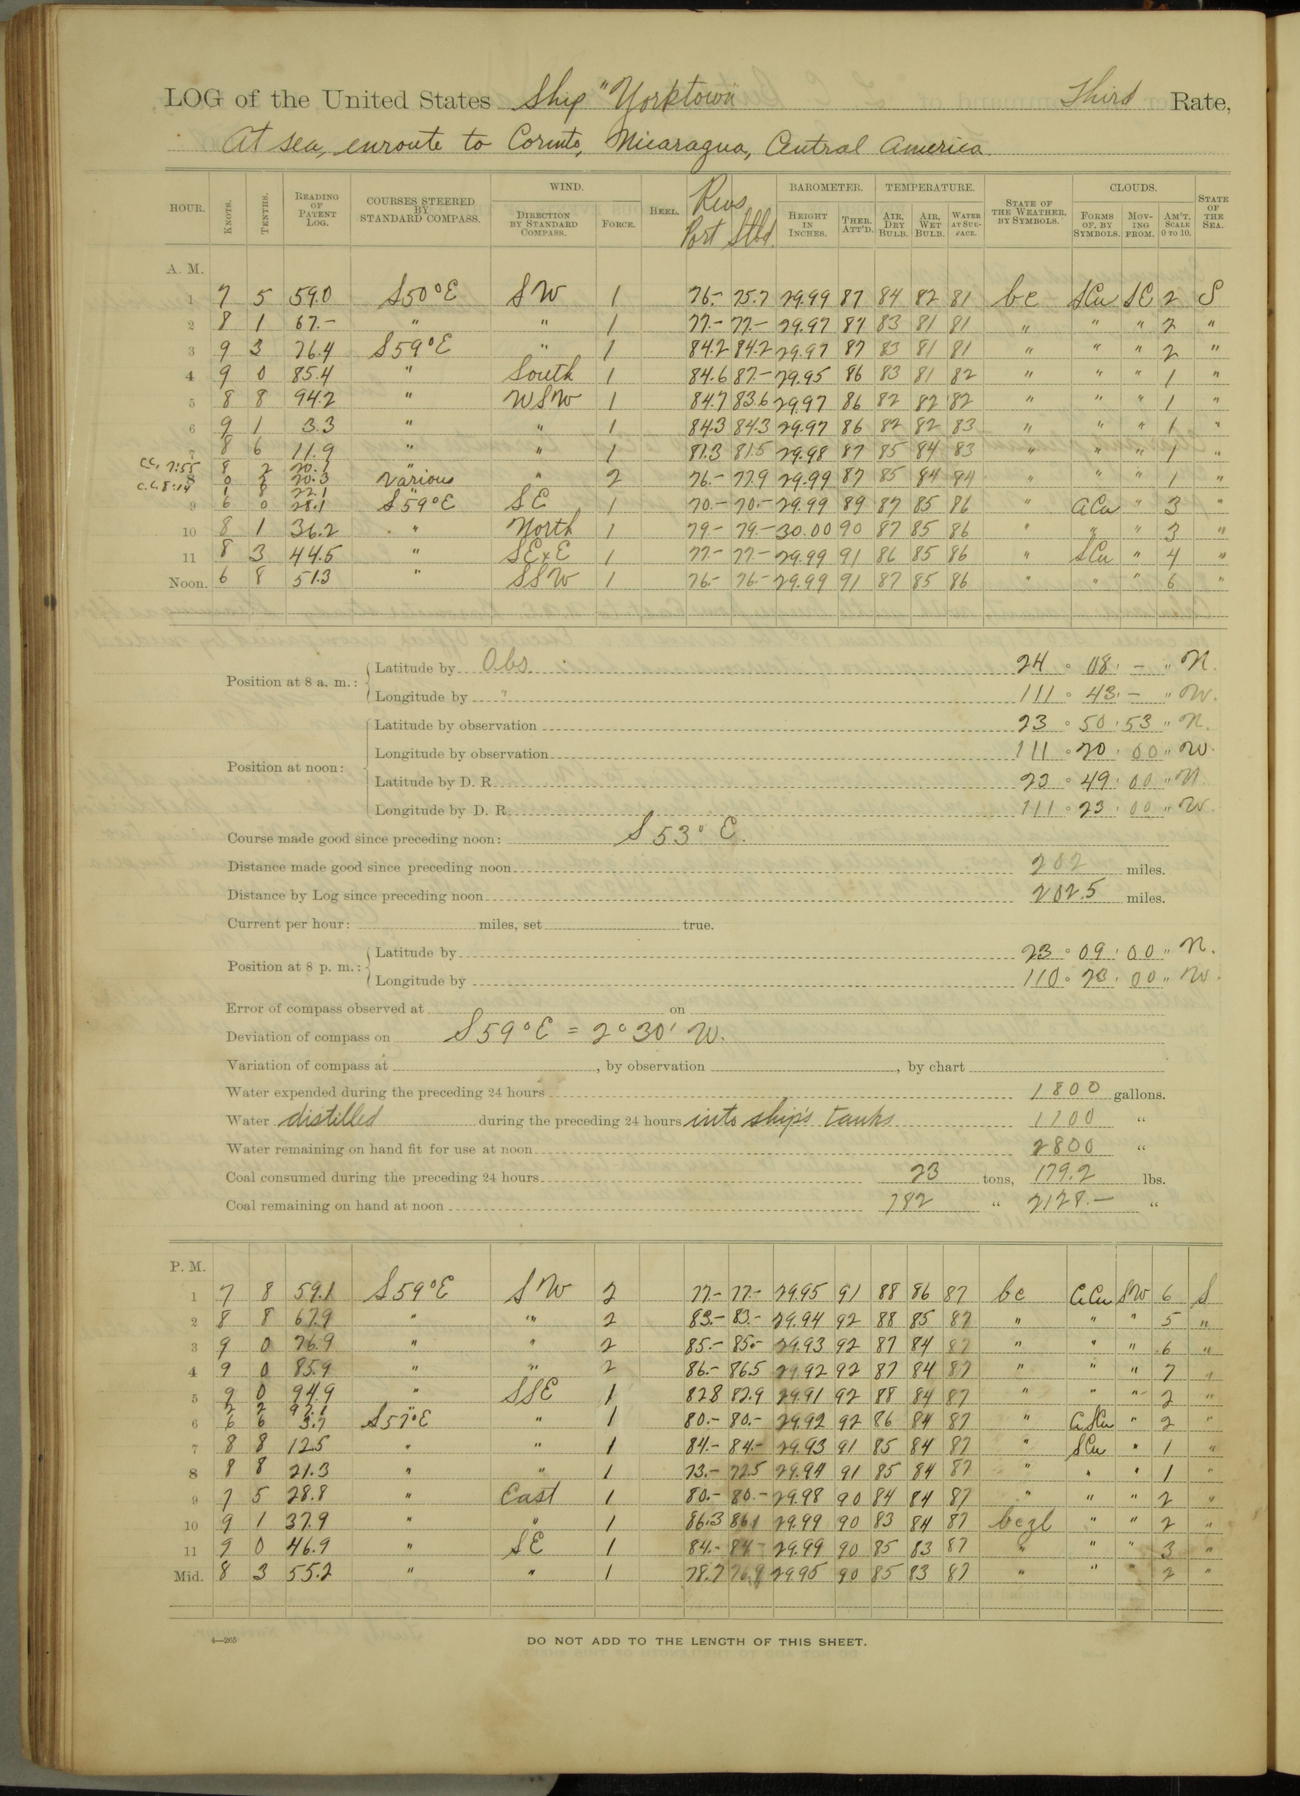 LOG of the United States Ship "Yorktown" Third Rate,
At sea, enroute to Corinto, Nicaragua, Central America
HOUR. KNOTS. TENTHS. READING OF PATENT LOG. COURSES STEERED BY STANDARD COMPASS. WIND. DIRECTION BY STANDARD COMPASS. FORCE. HEEL. Revs Port Stbd. BAROMETER. HEIGHT IN INCHES. THER. ATT'D. TEMPERATURE. AIR, DRY BULB. AIR, WET BULB. WATER AT SURFACE. STATE OF THE WEATHER, BY SYMBOLS. CLOUDS. FORMS OF, BY SYMBOLS. MOVING FROM. AM'T. SCALE 0 TO 10. STATE OF THE SEA.
A. M.
1 7 5 59.0 S50°E SW 1 76.- 75.7 29.99 87 84 82 81 bc SCu SE 2 S
2 8 1 67.- " " 1 77.- 77.- 29.97 87 83 81 81 " " " 2 "
3 9 3 76.4 S59°E " 1 84.2 84.2 29.97 87 83 81 81 " " " 2 "
4 9 0 85.4 " South 1 84.6 87.- 29.95 86 83 81 82 " " " 1 "
5 8 8 94.2 " WSW 1 84.7 83.6 29.97 86 82 82 82 " " " 1 "
6 9 1 3.3 " " 1 84.3 84.3 29.97 86 82 82 83 " " " 1 "
7 8 6 11.9 " " 1 81.3 81.5 29.98 87 85 84 83 " " " 1 "
C.C. 7:55 8 2 20.1 "
8 0 2 20.3 various " 2 76.- 77.9 29.99 87 85 84 84 " " " 1 "
C.C. 8:14 1 8 22.1 "
9 6 0 28.1 S59°E SE 1 70.- 70.- 29.99 89 87 85 86 " aCu " 3 "
10 8 1 36.2 " North 1 79.- 79.- 30.00 90 87 85 86 " " " 3 "
11 8 3 44.5 " SExE 1 77.- 77.- 29.99 91 86 85 86 " SCu " 4 "
Noon. 6 8 51.3 " SSW 1 76.- 76.- 29.99 91 87 85 86 " " " 6 "
Position at 8 a. m.: Latitude by Obs. 24 ° 08 ' - " N.
Longitude by " 111 ° 43 ' - " W.
Position at noon: Latitude by observation 23 ° 50 ' 53 " N.
Longitude by observation 111 ° 20 ' 00 " W.
Latitude by D. R. 23 ° 49 ' 00 " N.
Longitude by D. R. 111 ° 23 ' 00 " W.
Course made good since preceding noon: S 53° E.
Distance made good since preceding noon 202 miles.
Distance by Log since preceding noon 202.5 miles.
Current per hour: miles, set true.
Position at 8 p. m.: Latitude by 23 ° 09 ' 00 " N.
Longitude by 110 ° 20 ' 00 " W.
Error of compass observed at on
Deviation of compass on S59°E = 2° 30' W.
Variation of compass at , by observation , by chart
Water expended during the preceding 24 hours 1800 gallons.
Water distilled during the preceding 24 hours into ship's tanks 1100 "
Water remaining on hand fit for use at noon 2800 "
Coal consumed during the preceding 24 hours 23 tons, 179.2 lbs.
Coal remaining on hand at noon 782 " 2128.- "
P. M.
1 7 8 59.1 S59°E SW 2 77.- 77.- 29.95 91 88 86 87 bc aCu SW 6 S
2 8 8 67.9 " " 2 83.- 83.- 29.94 92 88 85 87 " " " 5 "
3 9 0 76.9 " " 2 85.- 85.- 29.93 92 87 84 87 " " " 6 "
4 9 0 85.9 " " 2 86.- 86.5 29.92 92 87 84 87 " " " 7 "
5 9 0 94.9 " SSE 1 82.8 82.9 29.91 92 88 84 87 " " " 2 "
2 2 97.1 "
6 6 6 3.7 S57°E " 1 80.- 80.- 29.92 92 86 84 87 " aSCu " 2 "
7 8 8 12.5 " " 1 84.- 84.- 29.93 91 85 84 87 " SCu " 1 "
8 8 8 21.3 " " 1 73.- 72.5 29.94 91 85 84 87 " " " 1 "
9 7 5 28.8 " East 1 80.- 80.- 29.98 90 84 84 87 " " " 2 "
10 9 1 37.9 " " 1 86.3 86.1 29.99 90 83 84 87 bczl " " 2 "
11 9 0 46.9 " SE 1 84.- 84.- 29.99 90 85 83 87 " " " 3 "
Mid. 8 3 55.2 " " 1 78.7 76.9 29.95 90 85 83 87 " " " 2 "
4—265
DO NOT ADD TO THE LENGTH OF THIS SHEET.